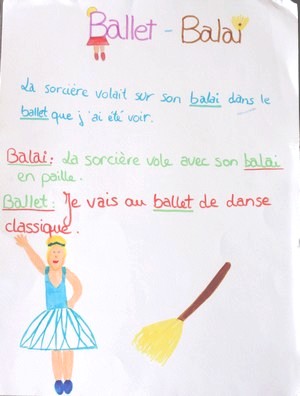 Ballet - Balai
La sorcière volait sur son balai dans le
ballet que j'ai été voir.
Balai : La sorcière vole avec son balai
en paille.
Ballet : Je vais au ballet de danse
classique.